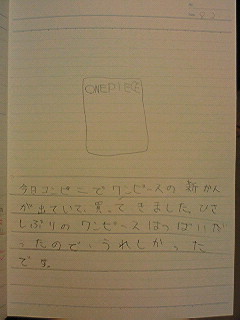 ONEPIECE
今日コンビニでワンピースの新かん
が出ていて、買ってきました。ひさ
しぶりのワンピースはつばいだ
ったので、うれしかった
です。